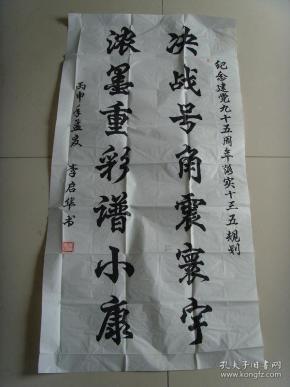 纪念建党九十五周年落实十三五规划
决战号角震寰宇
浓墨重彩谱小康
丙申年孟夏 李启华书
孔夫子旧书网